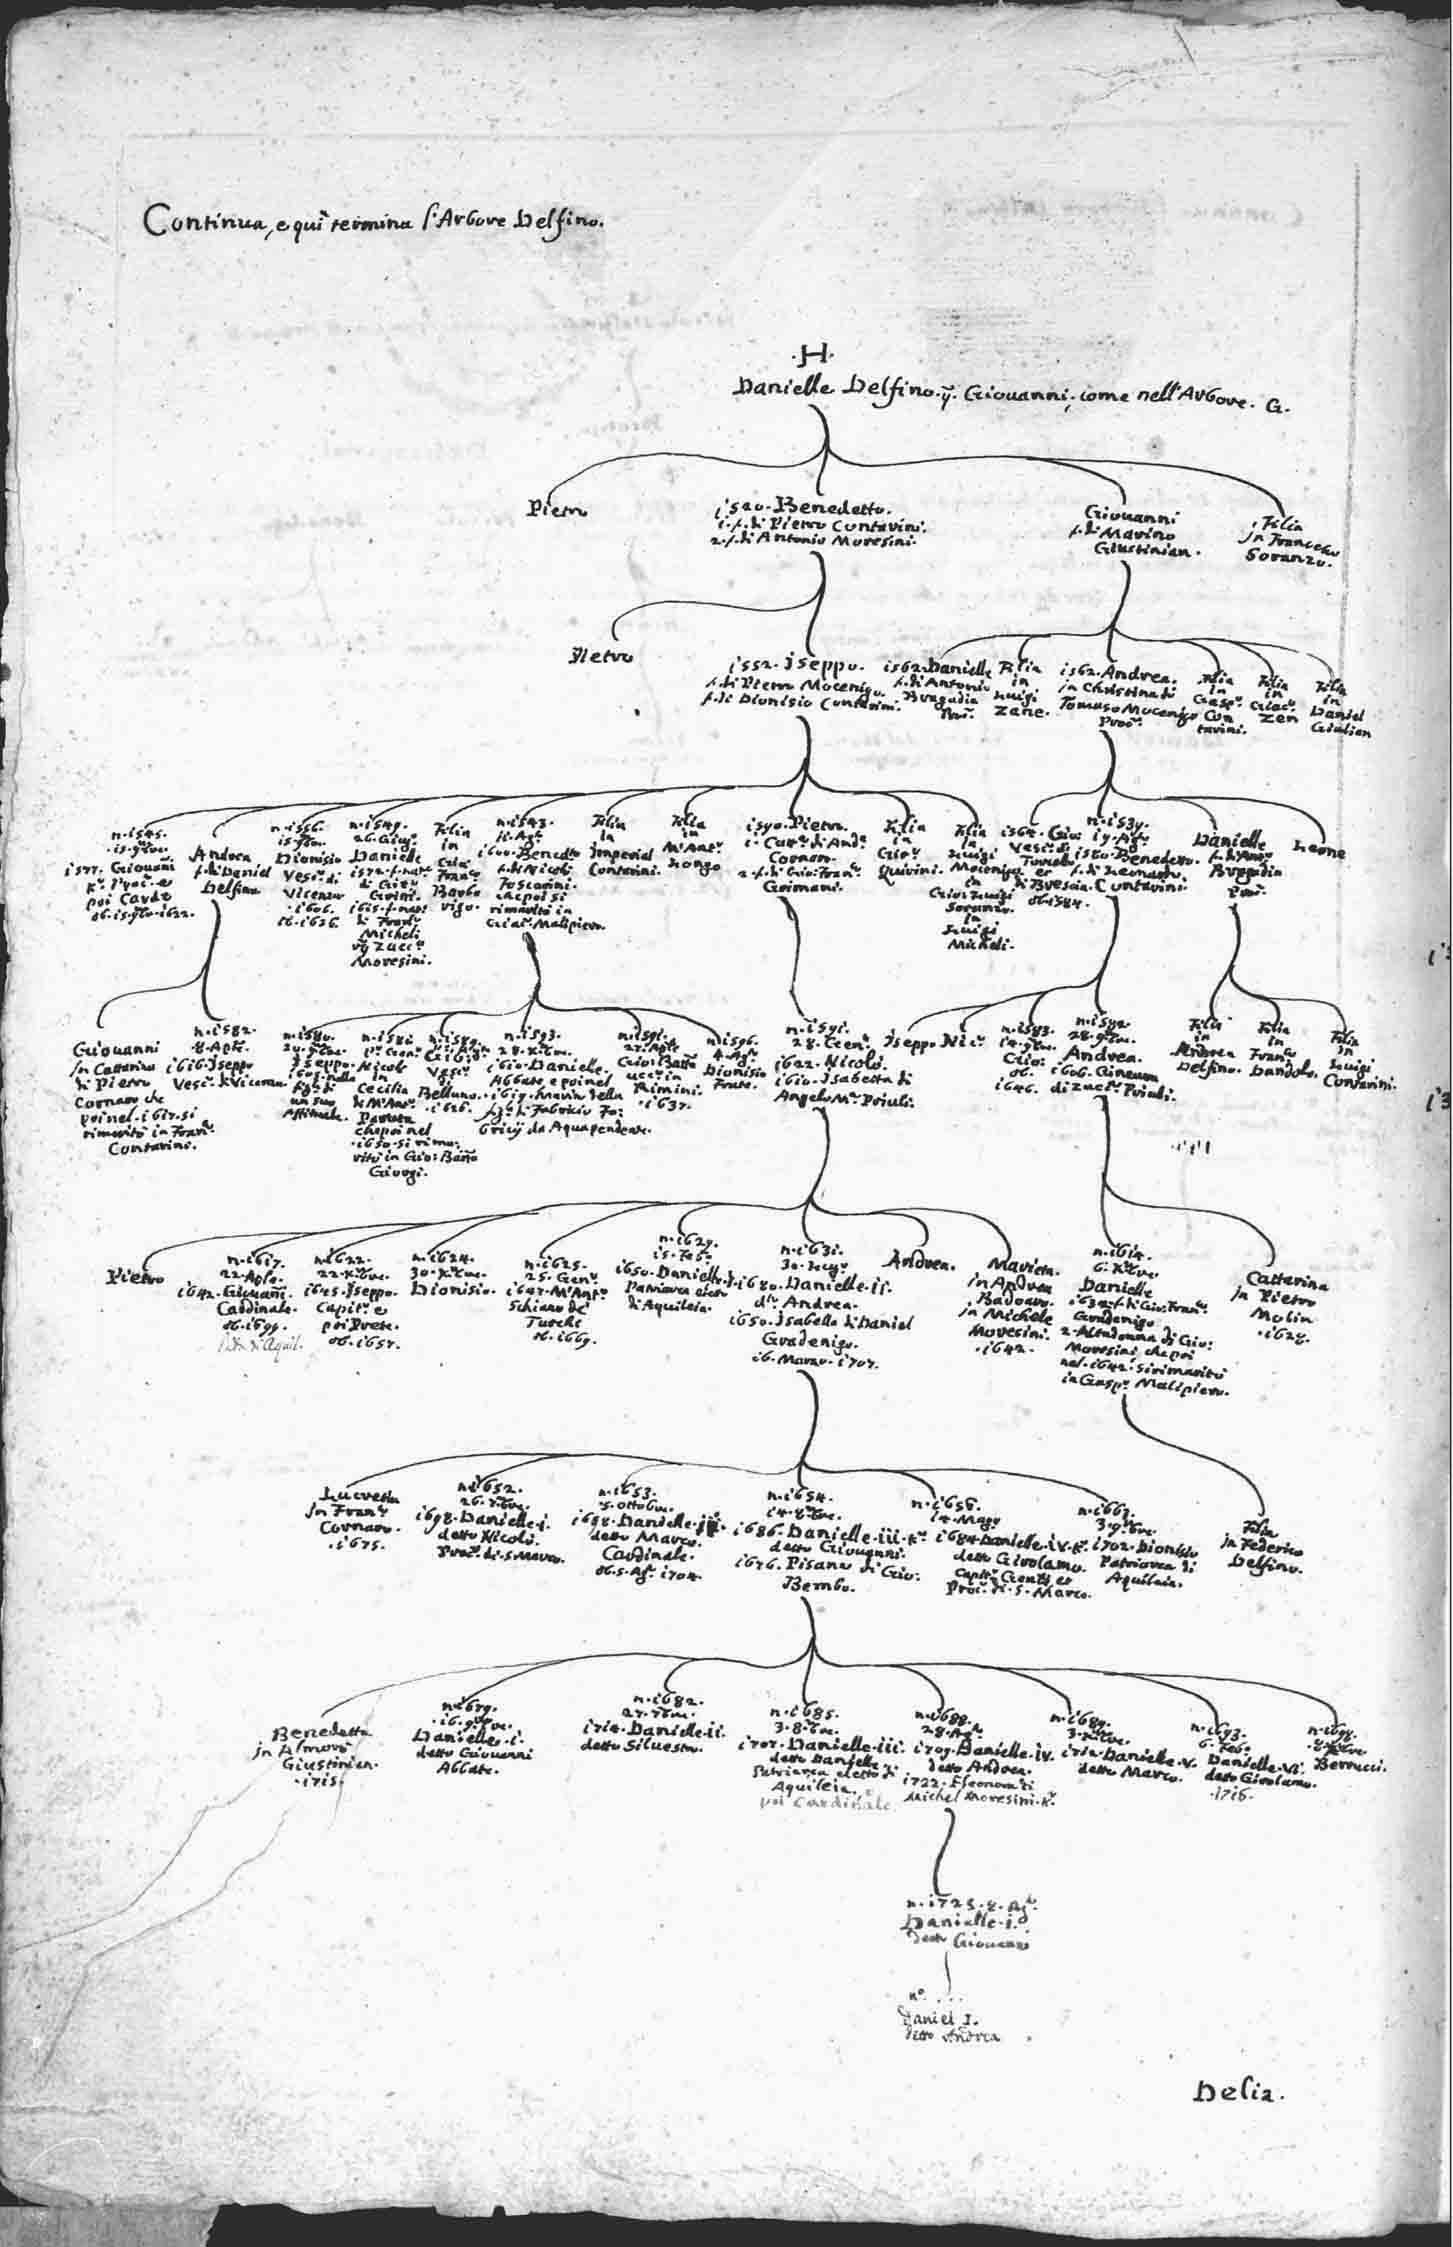 Continua, e qui termina l'Arbore Delfino.
.H.
Danielle Delfino. q. Giovanni, come nell'Arbore. G.
Pietro
i520. Benedetto.
i. f. di Pietro Contarini.
2. f. di Antonio Moresini.
Giouanni
f. di Marino
Giustinian.
Filia
in Francesco
Soranzo.
Pietro
i552. Iseppo.
f. di Pietro Mocenigo.
f. di Dionisio Contarini.
i562. Danielle
f. di Antonio
Bragadin
Filia
in
Luigi
Zane.
i562. Andrea.
in Christina di
Tomaso Mocenigo
Procr.
Filia
in
Gaspo.
Con
tarini.
Filia
in
Giaco.
Zen
Filia
in
Daniel
Giulian
n. i545.
i577. Giouani
Kr. Procr. e
poi Cardle
ob. i622.
Andrea
f. di Daniel
Delfin
n. i556.
Dionisio
Vesco. di
Vicenza
. i606.
ob. i626.
n. i549.
26. Giug.
Danielle
di Gieo.
Grini.
di Franco
Micheli
Zacco.
Moresini.
Filia
in
Gia.
Franco
Barba
rigo.
n. i543.
ii. Ago.
i600. Benedto
f. di Nicolò
Foscarini.
che poi si
rimaritò in
Giaco. Malipiero.
Filia
in
Imperial
Contarini.
Filia
in
M. Anto.
Longo
i590. Pietro.
i. Cata. di And.
Cornaro.
2. f. di Gio: Franco.
Grimani.
Filia
in
Gioo.
Quirini.
Filia
in
Luigi
Mocenigo
in
Gio: Luigi
Soranzo.
in
Luigi
Micheli.
i564. Gio:
Vesco. di
Torcelo
et
di Brescia.
ob. i584.
n. i539.
i9. Ago.
i580. Benedetto.
f. di Leonardo
Contarini.
Danielle
f. di Anto.
Bragadin
Procr.
Leone
Giouanni
in Cattarina
di Pietro
Cornaro che
poi nel i617. si
rimaritò in Franco.
Contarini.
n. i582.
8. Aple.
i616. Iseppo
Vesco. di Vicenza
n. i580.
Iseppo.
un suo
n. i581.
Nicolò
in
Cecilia
di M. Anto.
che poi nel
. i650. si rima:
ritò in Gio: Batta
Giorgi.
Vesco.
di
Belluno.
. i626.
n. i593.
i610. Danielle.
Abbate, e poi nel
i619. Maria Zella
di Fabricio Fo:
bricij da Aquapendente.
n. i591.
27. Aple
Gio: Batta
in
Rimini.
. i637.
n. i596.
4. Ago.
Dionisio
Frate.
n. i591.
28. Genr.
i622. Nicolò.
i610. Isabetta di
Angelo Ma. Priuli.
Iseppo
Nico.
n. i583.
Gio:
ob.
i646.
n. i592.
Andrea.
i606. Gineura
di Zacco. Priuli.
Filia
in
Andrea
Delfino.
Filia
in
Franco
Dandolo.
Filia
in
Luigi
Contarini.
Pietro
n. i617.
22. Aple.
i642. Giouani.
Cardinale.
ob. i699.
n. i622.
i645. Iseppo.
Capito. e
poi Prete.
ob. i657.
n. i624.
Dionisio.
n. i625.
25. Genr.
i647. M. Anto.
Schiauo de
Turchi
ob. i669.
n. i629.
i5. Feb.
i650. Danielle. i.
Patriarca eletto
di Aquileia.
n. i631.
i680. Danielle. ii.
do. Andrea.
i650. Isabella di Daniel
Gradenigo.
i6. Marzo. i707.
Andrea.
Marieta.
in Andrea
Badoaro.
in Michele
Moresini.
. i642.
n. i614.
Danielle
f. di Gio: Franco.
Gradenigo
2. Altadonna di Gio:
Moresini, che poi
nel i642. si rimaritò
in Gaspo. Malipiero.
Cattarina
in Pietro
Molin
. i628.
Lucretia
in Franco
Cornaro.
. i675.
n. i652.
i698. Danielle. i.
detto Nicolò.
Procr. di S. Marco.
n. i653.
5. Ottobre.
i688. Danielle. ii.
detto Marco.
Cardinale.
ob. 5. Ago. i704.
n. i654.
i4. 8bre.
i686. Danielle. iii. Kr.
detto Giouanni.
i676. Pisana di Gio:
Bembo.
n. i656.
i4. Mago
i684. Danielle. iv. Kr.
detto Girolamo.
Capito. Genle. et
Procr. di S. Marco.
n. i663.
3. 9bre.
i702. Dionisio
Patriarca di
Aquileia.
Filia
in Federico
Delfino.
Benedetta
in Almorò
Giustinian.
. i715.
n. i679.
. i6. 9bre.
Danielle. i.
detto Giouanni
Abbate.
n. i682.
27. 7bre.
i714. Danielle. ii.
detto Siluestro.
n. i685.
3. 8bre.
i707. Danielle. iii.
detto Danielle.
Patriarca eletto di
Aquileia.
poi Cardinale.
n. i688.
28. Ago.
i709. Danielle. iv.
detto Andrea.
i722. Eleonora di
Michel Moresini Kr.
n. i689.
i712. Danielle. v.
detto Marco.
n. i693.
6. Feb.
Danielle. vi.
detto Girolamo.
. i716.
n. i698.
Bernucci.
n. i723. 8. Ago.
Danielle. i.
detto Giouanni
no. . . .
Daniel I.
detto Andrea
Delia.